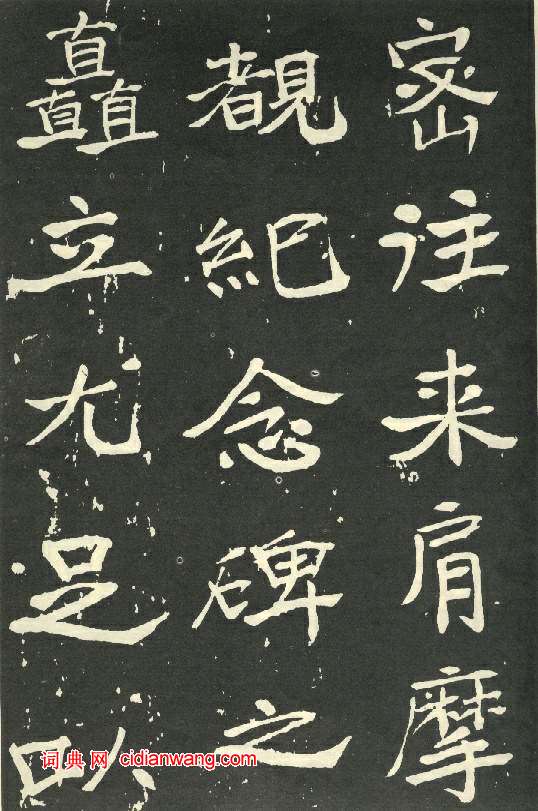 密往来肩摩
覩紀念碑之
矗立尤足以
词典网 cidianwang.com